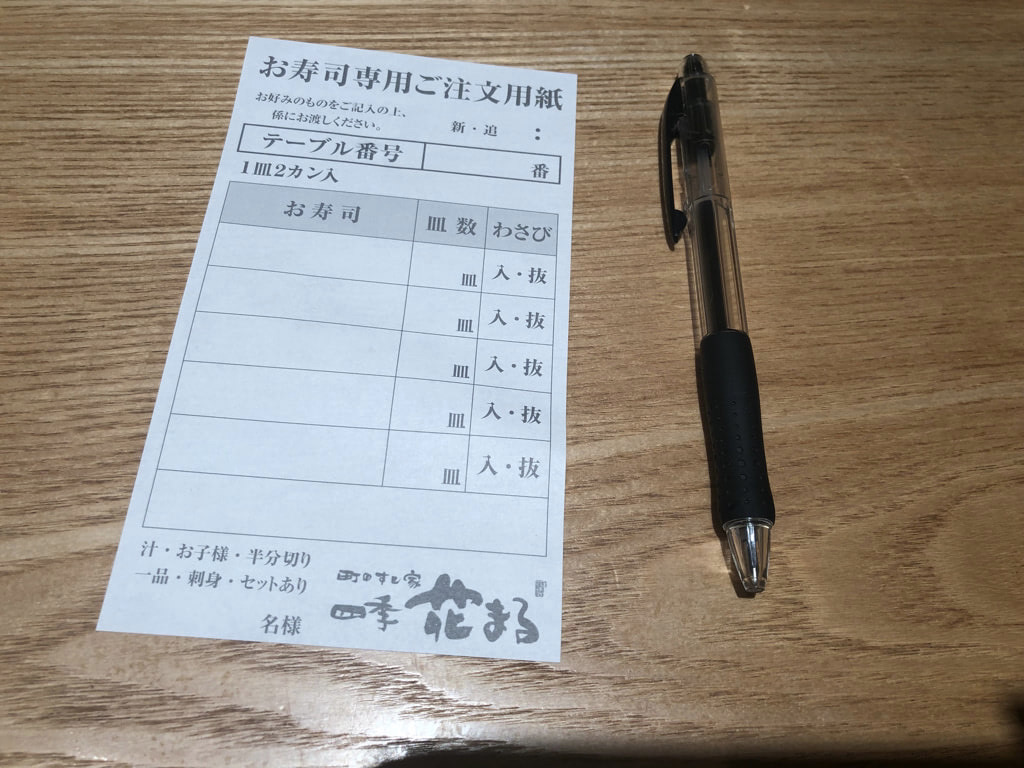 お寿司専用ご注文用紙
お好みのものをご記入の上、
係にお渡しください。
新・追 :
テーブル番号 番
1皿2カン入
お寿司 皿数 わさび
皿 入・抜
皿 入・抜
皿 入・抜
皿 入・抜
皿 入・抜
汁・お子様・半分切り
一品・刺身・セットあり
名様
町のすし家
四季 花まる